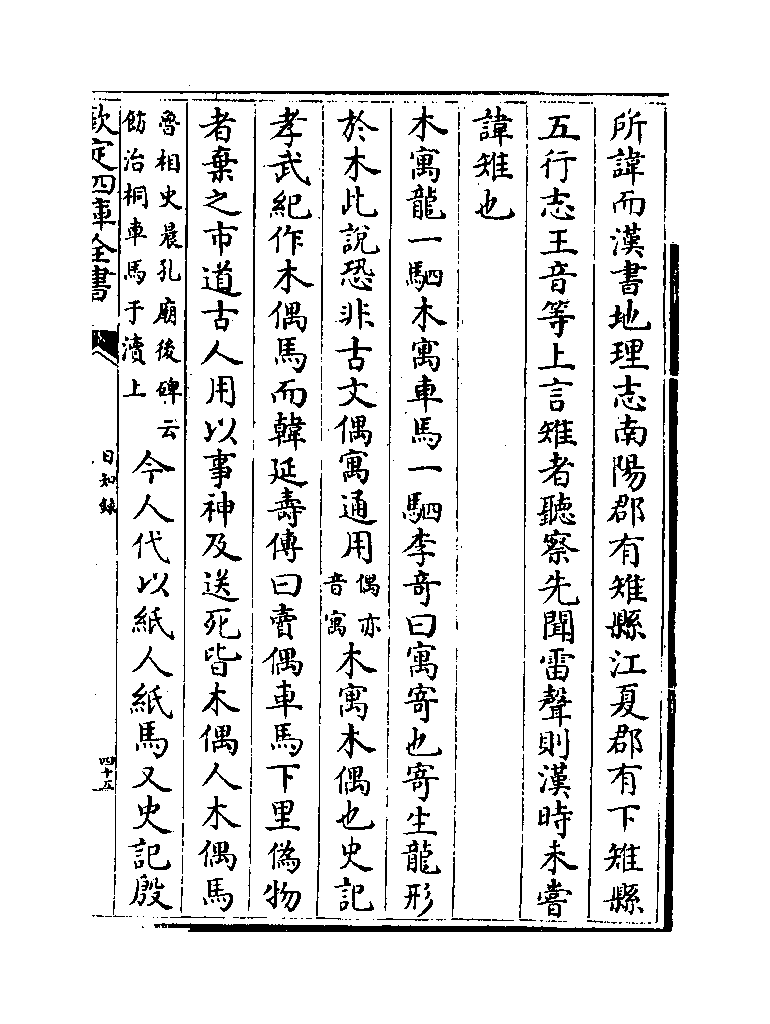 所諱而漢書地理志南陽郡有雉縣江夏郡有下雉縣
五行志王音等上言雉者聽察先聞雷聲則漢時未嘗
諱雉也
木寓龍一駟木寓車馬一駟李奇曰寓寄也寄生龍形
於木此說恐非古文偶寓通用偶亦音寓木寓木偶也史記
孝武紀作木偶馬而韓延壽傳曰賣偶車馬下里偽物
者棄之市道古人用以事神及送死皆木偶人木偶馬
魯相史晨孔廟後碑云
飭治桐車馬于瀆上
今人代以紙人紙馬又史記殷
欽定四庫全書
日知録
四十五